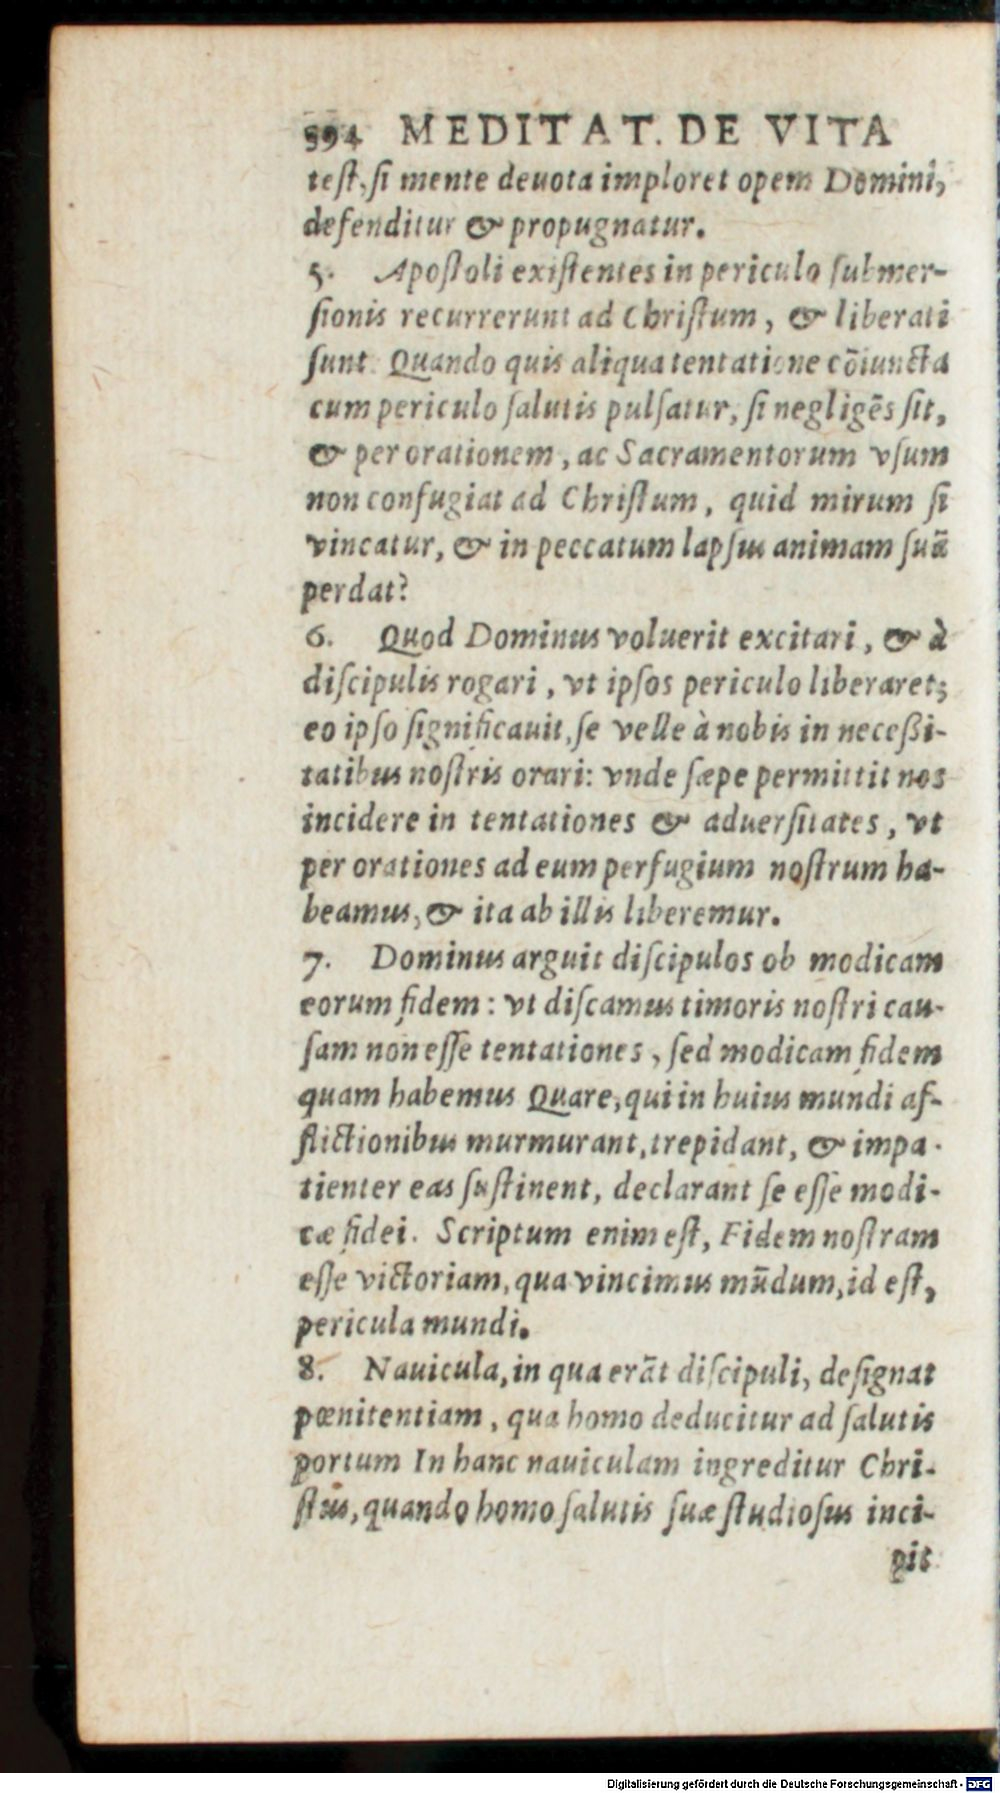 594 MEDITAT. DE VITA
teſt, ſi mente deuota imploret opem Domini,
defenditur & propugnatur.
5. Apoſtoli exiſtentes in periculo ſubmer-
ſionis recurrerunt ad Chriſtum, & liberati
ſunt. Quando quis aliqua tentatione cōiuncta
cum periculo ſalutis pulſatur, ſi negligēs ſit,
& per orationem, ac Sacramentorum vſum
non confugiat ad Chriſtum, quid mirum ſi
vincatur, & in peccatum lapſus animam ſuā
perdat?
6. Quod Dominus voluerit excitari, & à
diſcipulis rogari, vt ipſos periculo liberaret;
eo ipſo ſignificauit, ſe velle à nobis in neceßi-
tatibus noſtris orari: vnde ſæpe permittit nos
incidere in tentationes & aduerſitates, vt
per orationes ad eum perfugium noſtrum ha-
beamus, & ita ab illis liberemur.
7. Dominus arguit diſcipulos ob modicam
eorum fidem: vt diſcamus timoris noſtri cau-
ſam non eſſe tentationes, ſed modicam fidem
quam habemus Quare, qui in huius mundi af-
flictionibus murmurant, trepidant, & impa-
tienter eas ſuſtinent, declarant ſe eſſe modi-
cæ fidei. Scriptum enim eſt, Fidem noſtram
eſſe victoriam, qua vincimus mūdum, id eſt,
pericula mundi.
8. Nauicula, in qua erāt diſcipuli, deſignat
pœnitentiam, qua homo deducitur ad ſalutis
portum In hanc nauiculam ingreditur Chri-
ſtus, quando homo ſalutis ſuæ ſtudioſus inci-
pit
Digitalisierung gefördert durch die Deutsche Forschungsgemeinschaft - DFG